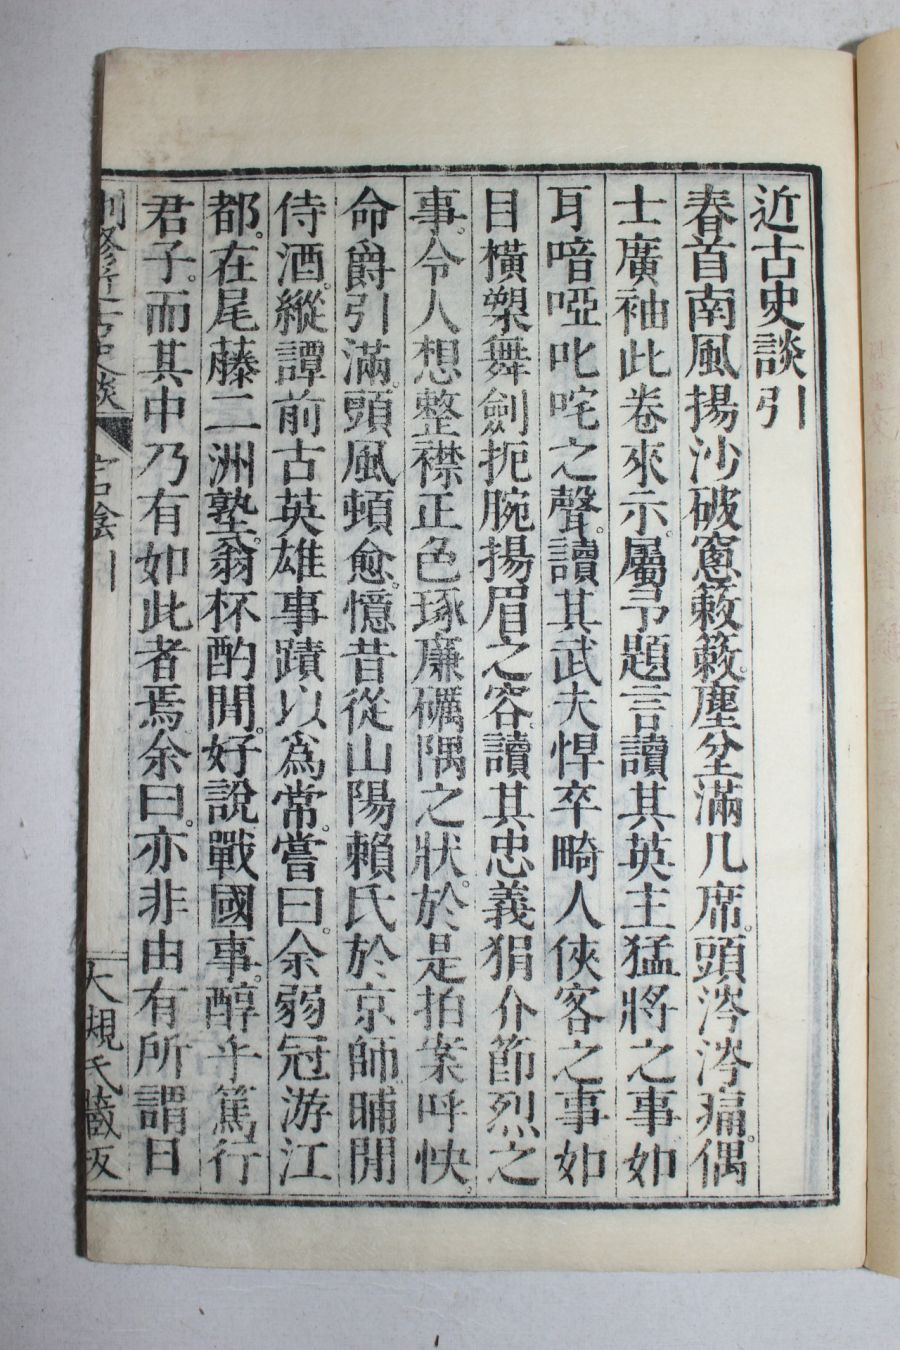 近古史談引
春首南風揚沙破窻簌簌塵坌滿几席頭涔涔痛偶
士廣袖此卷來示屬予題言讀其英主猛將之事如
耳喑啞叱咤之聲讀其武夫悍卒畸人俠客之事如
目橫槊舞劍扼腕揚眉之容讀其忠義狷介節烈之
事令人想整襟正色琢廉礪隅之狀於是拍案呼快
命爵引滿頭風頓愈憶昔從山陽賴氏於京師晡閒
侍酒縱譚前古英雄事蹟以爲常嘗曰余弱冠游江
都在尾藤二洲塾翁杯酌閒好說戰國事醇乎篤行
君子而其中乃有如此者焉余曰亦非由有所謂日
刪修近古史談 宕陰引 大槻氏藏板